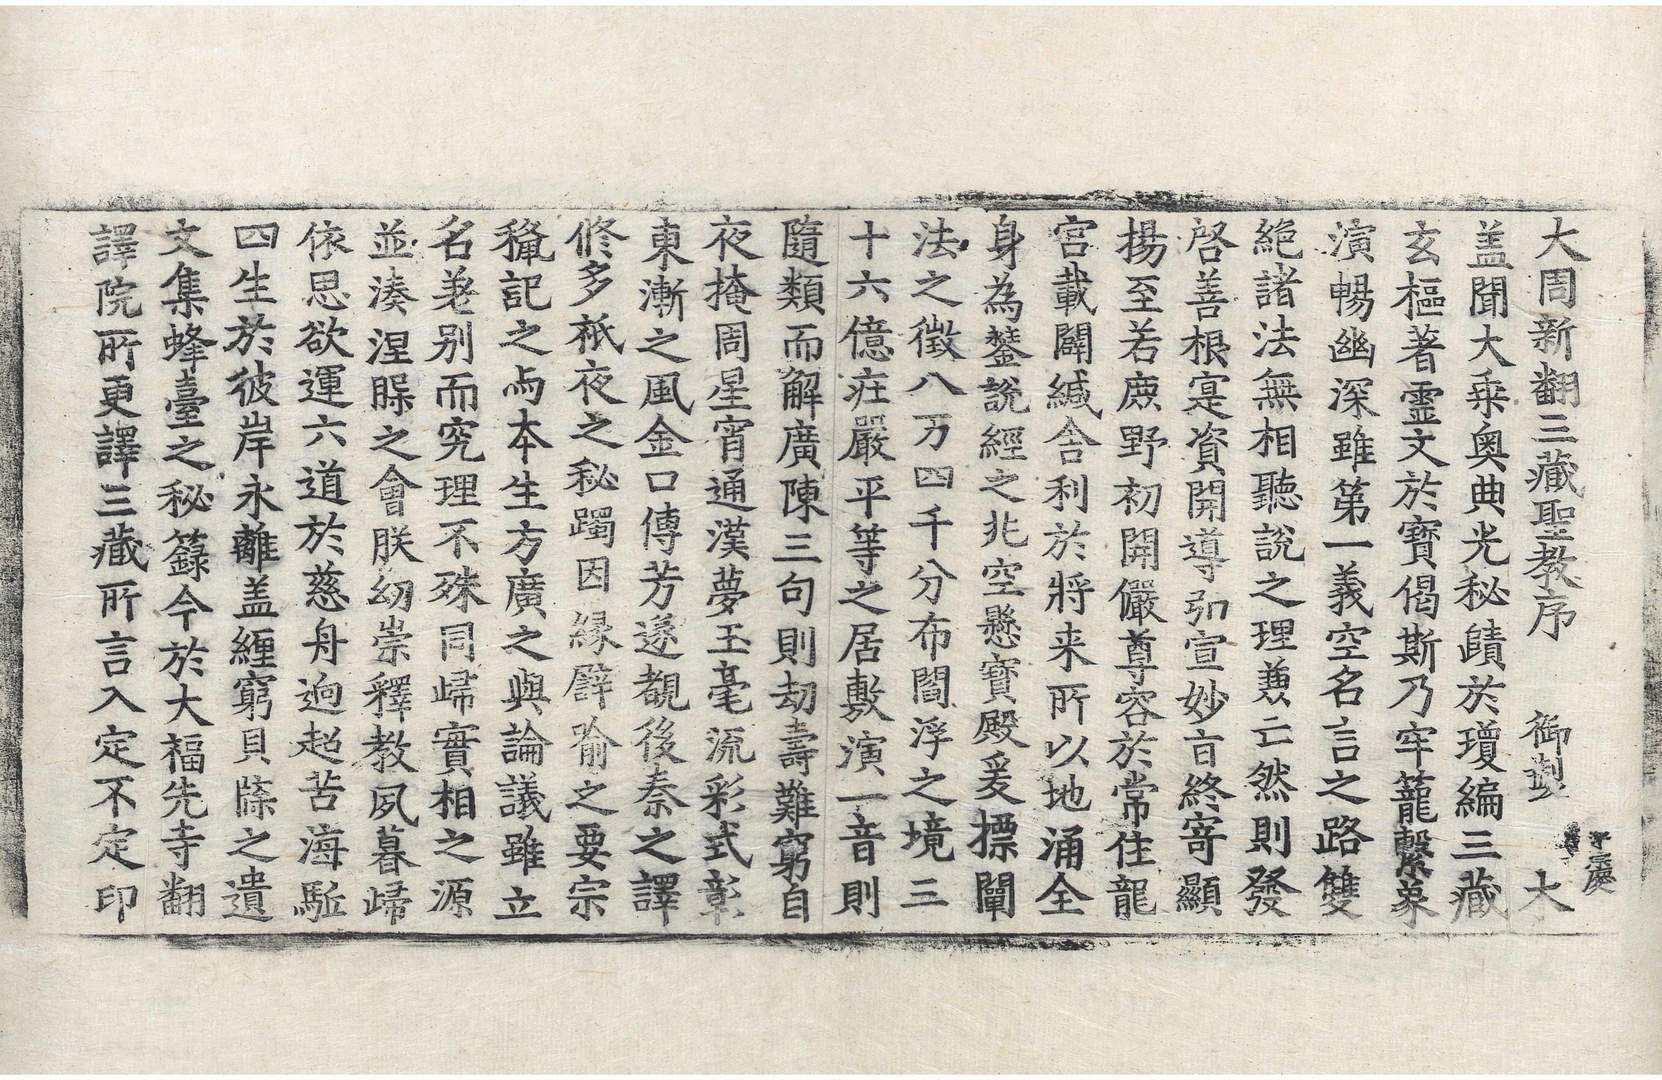 大周新翻三藏聖教序 御製 大
盖聞大乘奧典光秘賾於瓊編三藏
玄樞著靈文於寶偈斯乃牢籠繫象
演暢幽深雖第一義空名言之路雙
絶諸法無相聽說之理兼亡然則發
啓善根寔資開導弘宣妙旨終寄顯
揚至若鹿野初開儼尊容於常住龍
宮載闢緘舍利於將来所以地涌全
身為鏨說經之兆空懸寶殿爰摽闡
法之徵八万四千分布閻浮之境三
十六億莊嚴平等之居敷演一音則
隨類而解廣陳三句則劫壽難窮自
夜掩周星宵通漢夢玉毫流彩式彰
東漸之風金口傳芳遂覩後秦之譯
修多祇夜之秘躅因緣譬喻之要宗
授記之与本生方廣之與論議雖立
名差别而究理不殊同歸實相之源
並湊涅槃之會朕幼崇釋教夙暮歸
依思欲運六道於慈舟逈超苦海駈
四生於彼岸永離盖纏窮貝牒之遺
文集蜂臺之秘籙今於大福先寺翻
譯院所更譯三藏所言入定不定印